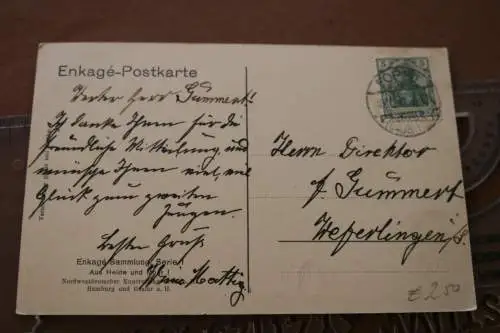 Enkagé-Postkarte
5 5
Werter Herr Gummert!
Ich danke Ihnen für die
freundliche Mitteilung, und
wünsche Ihnen viel, viel
Glück zum zweiten
Jungen.
Besten Gruß
Herrn Direktor
f. Gummert
Weferlingen
Enkagé-Sammlung Serie I
Aus Heide und
Nordwestdeutscher
Hamburg und
€ 2.50